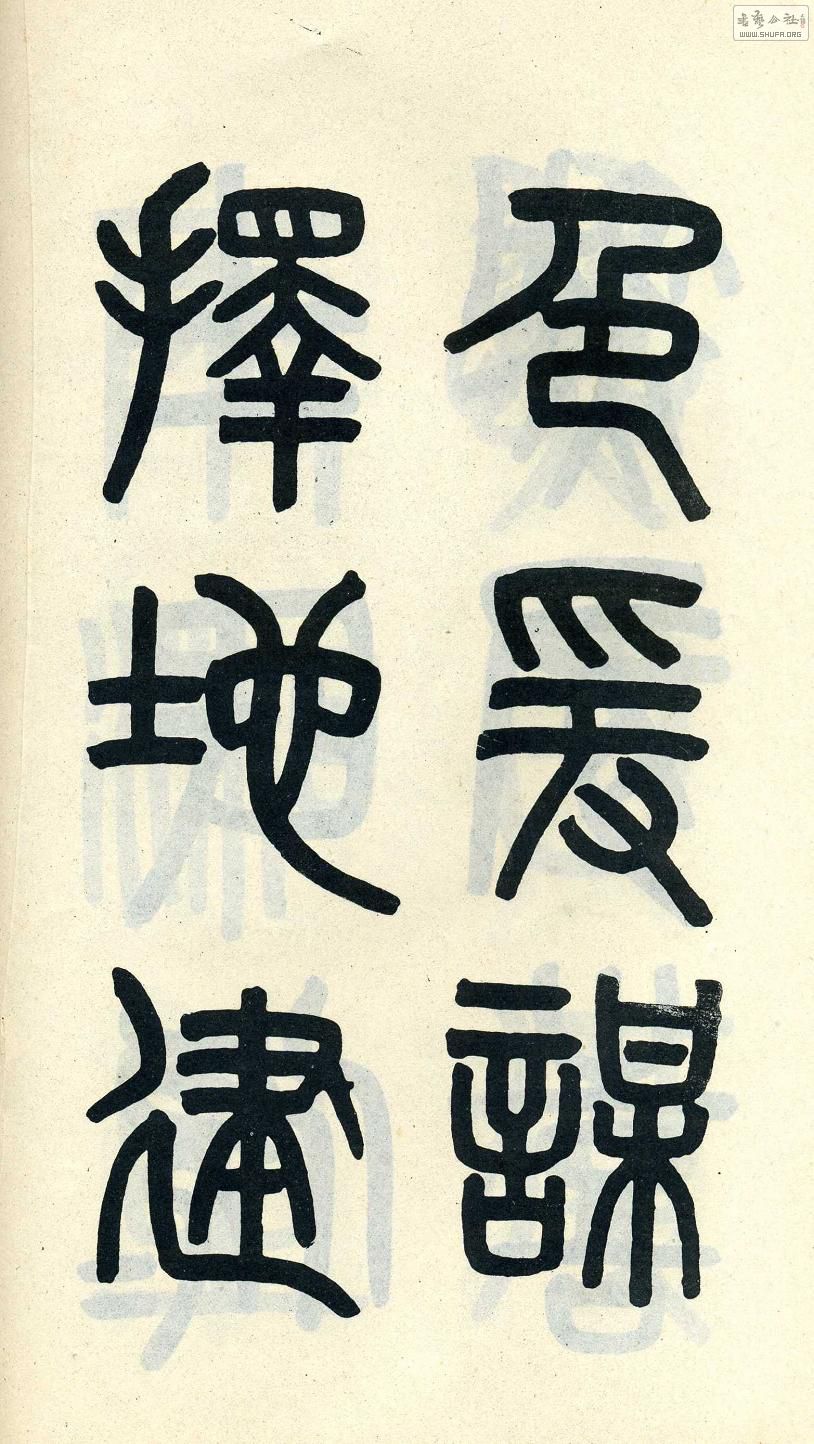 色爰謀
擇地建
书艺公社
WWW.SHUFA.ORG